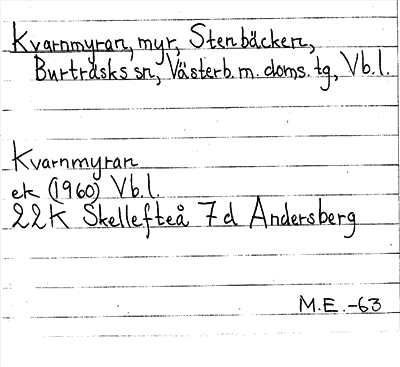 Kvarnmyran, myr, Stenbäcken,
Burträsks sn, Västerb. m. doms. tg, Vb.l.
Kvarnmyran
ek (1960) Vb.l.
22K Skellefteå 7d Andersberg
M.E. -63